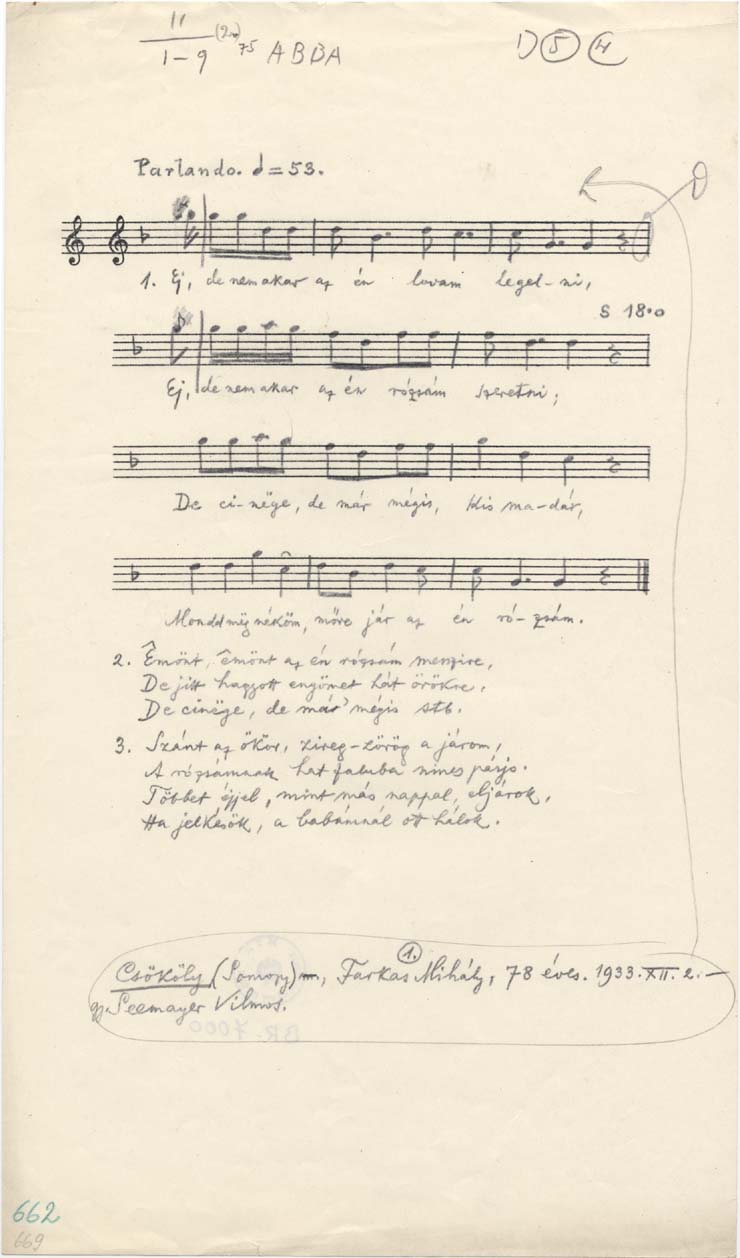 11 (2.)
1-9 75 ABBA
D 5 4
Parlando. = 53.
1. Ej, de nem akar az én lovam legel-ni,
S 18.0
Ej, de nem akar az én rózsám szeretni;
De ci-nëge, de már mégis, kis ma-dár,
Mondd mëg néköm, mőre jár az én ró-zsám.
2. Êmönt, êmönt az én rózsám messzire,
De jitt hagyott engömet hát örökre.
De cinëge, de már mégis stb.
3. Szánt az ökör, zireg-zörög a járom,
A rózsámnak hat faluba nincs párja.
Többet éjjel, mint más nappal, eljárok,
Ha jelkésök, a babámnál ott hálok.
1.
Csököly (Somogy) m., Farkas Mihály, 78 éves. 1933. XII. 2. -
gy. Seemayer Vilmos.
BR 7000
662
669